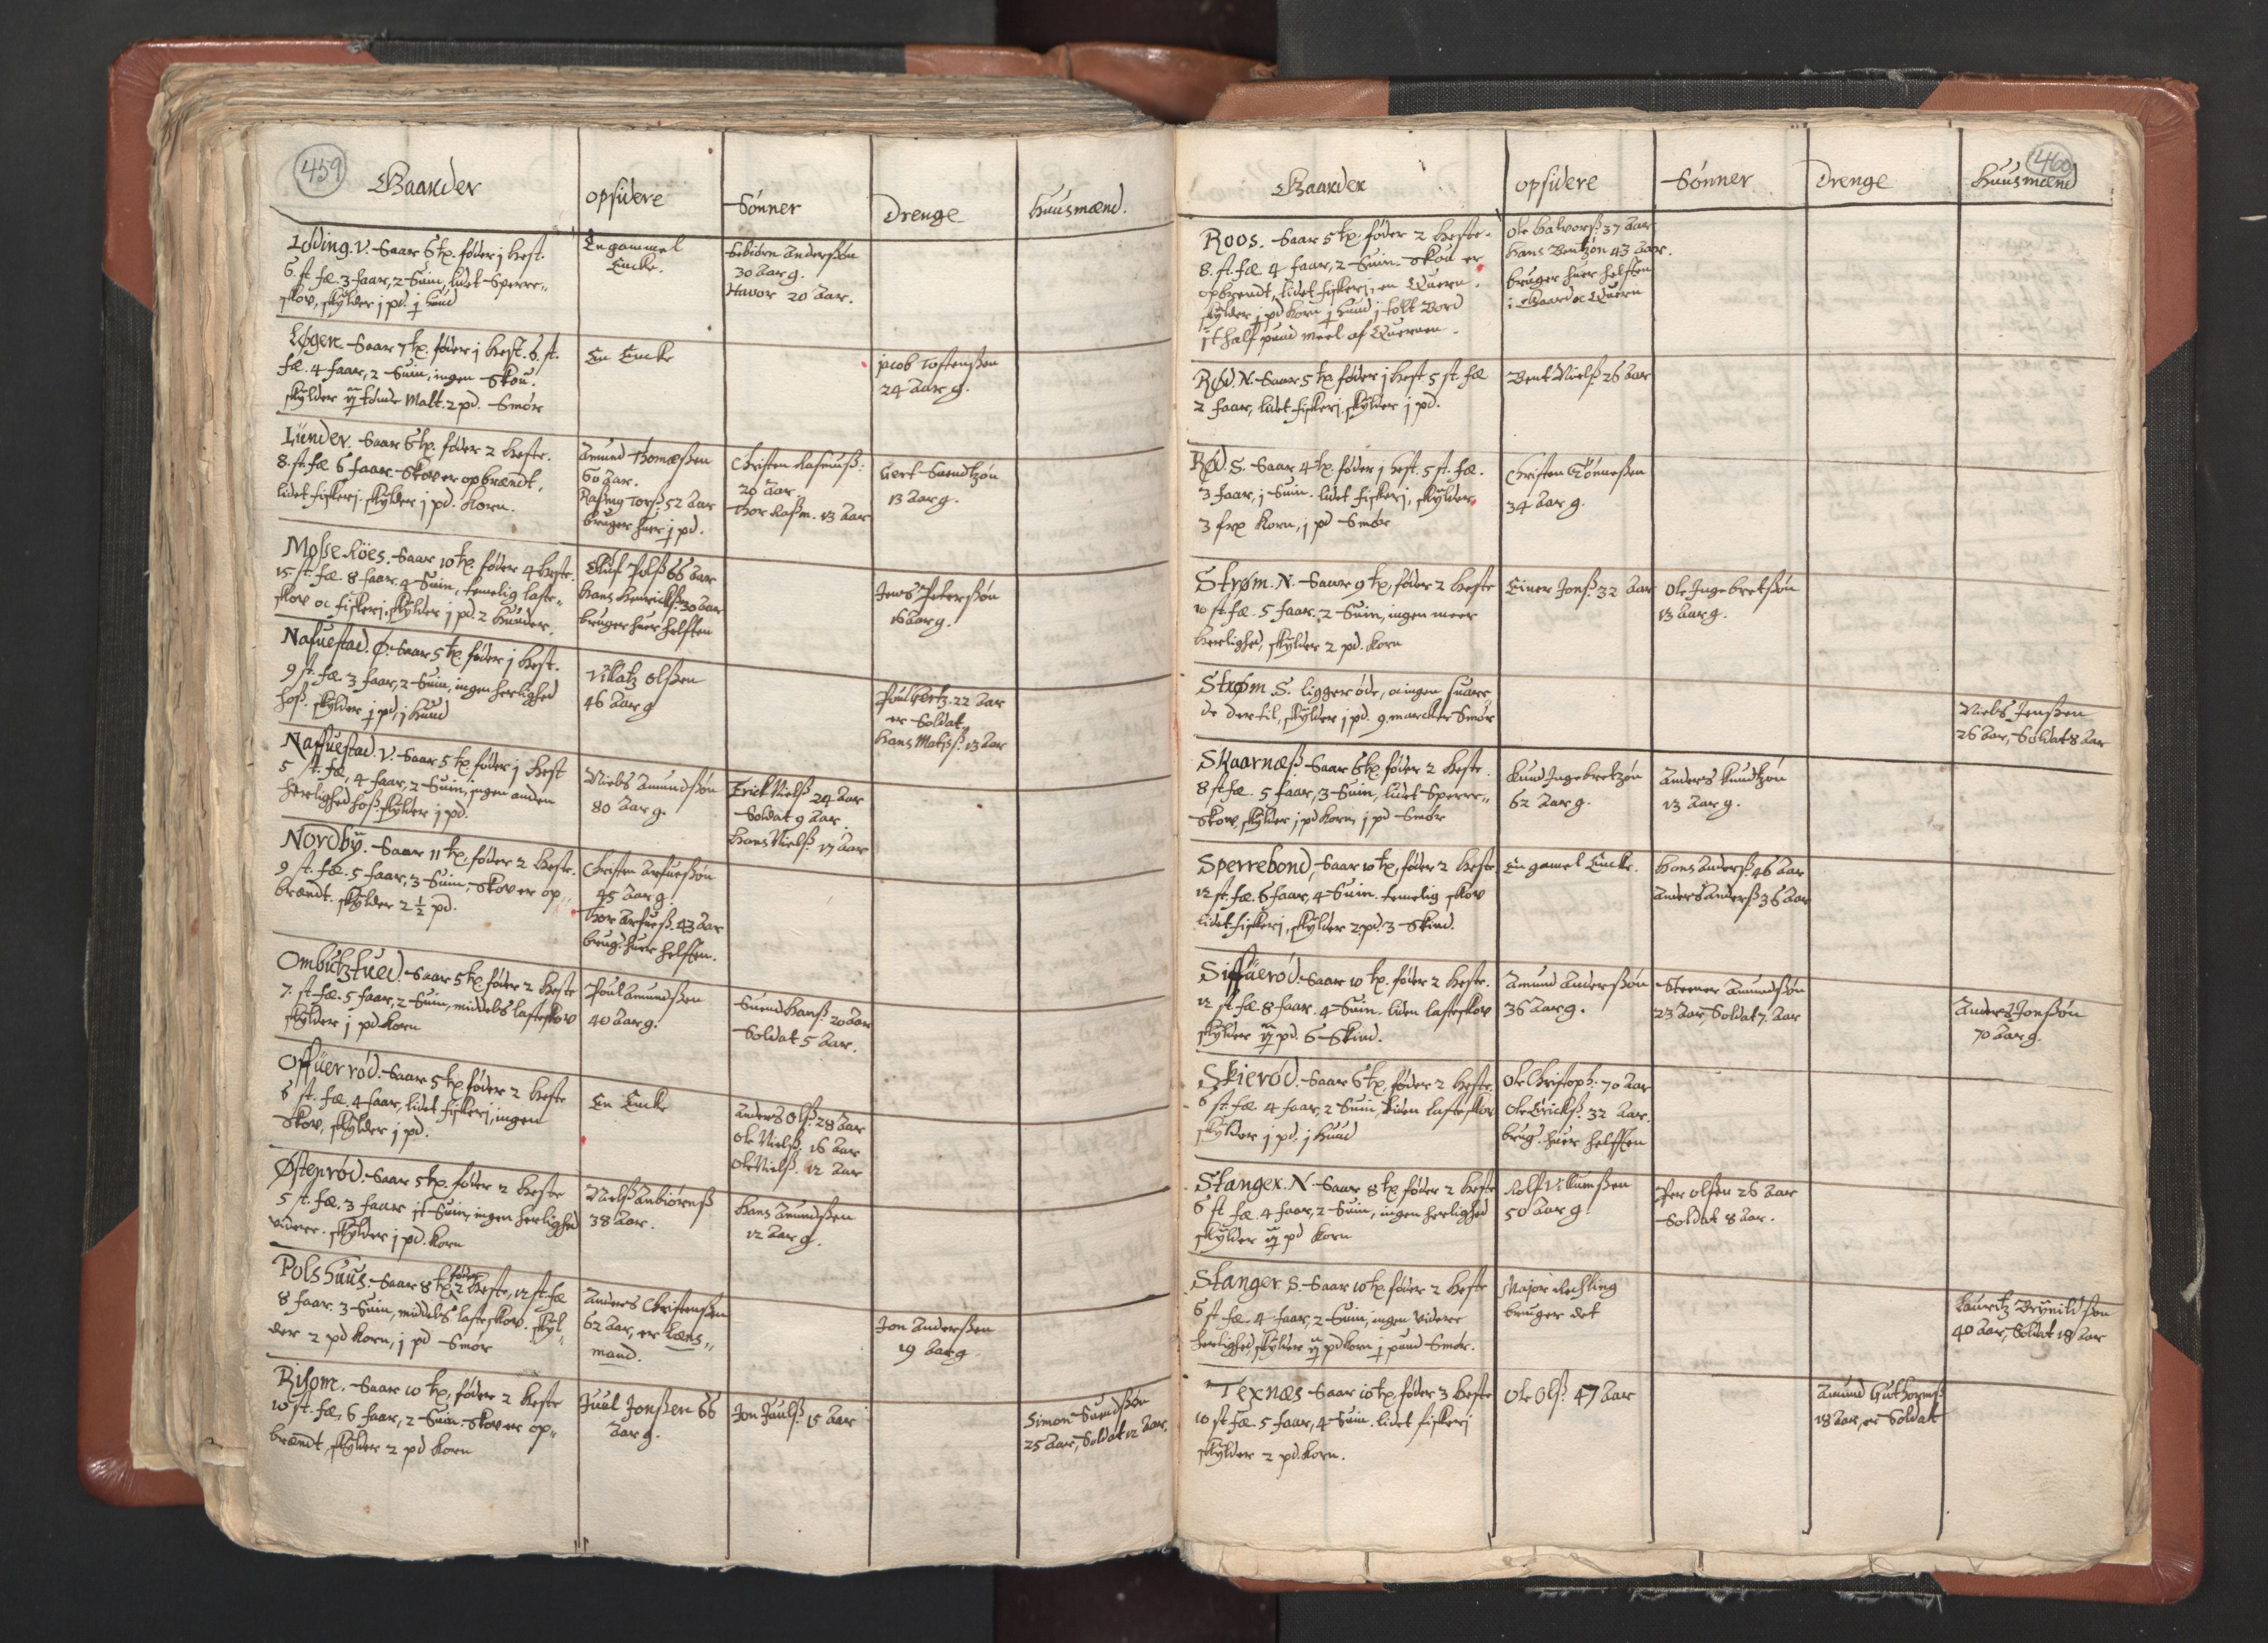 459
Gaarder
opsidere
Sønner
Drenge
Huusmænd.
Løding. V. Saar 6 tp. føder j hest.
6. st. fæ. 3 faar, 2 Suin, lidet Sperre„
skov, skylder j pd. j Huud
En gammel
Encke.
Sebiørn Anderssøn
30 Aar g.
Havor 20 Aar.
Løgen. Saar 7 tp. føder j hest. 6. st.
fæ. 4 faar, 2 Suin, ingen Skou.
skylder tønde Malt. 2 pd. Smør
En Encke
Jacob Tostenssen
24 Aar g.
Lunder. Saar 6 tp. føder 2 heste.
8. st. fæ 6 faar. Skov er opbrændt,
lidet fiskerj. skylder j pd. Korn.
Amund Thomæssen
60 Aar.
Rasmg Torss: 52 Aar
bruger huer j pd.
Christen Rasmuss:
20 Aar
Thor Rassm. 13 Aar
Gert Suendtzøn
13 Aar g.
Mosse Röes. Saar 10 tp. føder 4 heste.
15. st. fæ. 8 faar. 4 Suin, temelig laste„
skov oc fiskerj. skylder j pd. 2 Huuder.
Oluf Polss 66 Aar
Hans Henrickss: 30 Aar
bruger huer helften
Jens Peterssøn
16 Aar g.
Nafuestad. Ø. Saar 5 tp. føder j hest.
9 st. fæ. 3 faar, 2 Suin, ingen herlighed
hoss. skylder j pd, j Huud
Villatz Olssen
46 Aar g
Poul Gertz. 22 Aar
er Soldat,
Hans Matiss: 13 Aar
Naffuestad. V. Saar 5 tp. føder j hest
5 st. fæ, 4 faar, 2 Suin, ingen anden
herlighed hoss. skylder j pd.
Niels Amundssøn
80 Aar g.
Erick Nielss 24 Aar
Soldat 9 Aar
Hans Nielss. 17 Aar
Nordbÿ. Saar 11 tp, føder 2 heste.
9 st. fæ. 5 faar, 3 Suin, Skov er op„
brændt. skylder 2 ½ pd.
Christen Arfuessøn
45 Aar g.
Thor Arfuess. 43 Aar
brug. huer helften.
Ombutztued. Saar 5 tp føder 2 heste
7. st. fæ. 5 faar, 2 Suin, middels lasteskov
skylder j pd Korn
Poul Amundssen
40 Aar g.
Suend Hanss. 20 Aar
Soldat 5 Aar.
Offuerrød. Saar 5 tp føder 2 heste
6 st. fæ. 4 faar, lidet fiskerj, ingen
Skov, skylder j pd.
En Encke
Anders Olss. 28 Aar
Ole Nielss. 16 Aar
Ole Nielss. 12 Aar
Østenrød. Saar 5 tp. føder 2 heste
5 st. fæ. 3 faar it Suin, ingen herlighed
videre. skylder j pd. Korn
Nielss Anbiørnss
38 Aar.
Hans Amundssen
12 Aar g.
Polshuus. Saar 8 tp føder 2 heste, 12 st fæ
8 faar. 3 Suin, middels lasteskov. skyl„
der 2 pd Korn, j pd Smør
Anders Christenssen
62 Aar, er Læns„
mand.
Jon Anderssen
19 Aar g
Risom. Saar 10 tp, føder 2 heste
10 st. fæ, 6 faar, 2 Suin. Skov er op„
brændt, skylder 2 pd Korn
Juul Jonssen 66
Aar g.
Jon Juulss. 15 Aar
Simon Suendssøn
25 Aar, Soldat 12 Aar.
460
Gaarder
opsidere
Sønner
Drenge
Huusmænd
Roos. Saar 5 tp. føder 2 heste.
8. st. fæ 4 faar, 2 Suin. Skou er
opbrendt, lidet fiskerj, en Quern.
skylder j pd Korn j huud j tolt Bord
it half pund meel af Quernen.
Ole Halvorss. 37 Aar
Hans Bentzøn 43 Aar.
bruger huer helften
i Gaard oc Quern
Rød. N. Saar 5 tp. føder j hest 5 st. fæ
2 faar, lidet fiskerj. skylder j pd.
Bent Nielss. 26 Aar
Rød. S. Saar 4 tp. føder j hest. 5 st. fæ.
3 faar, j Suin. lidet fiskerj, skylder
3 frp Korn, j pd Smør
Christen Tønnessen
34 Aar g.
Strøm. N. Saar 9 tp, føder 2 heste
10 st. fæ. 5 faar, 2 Suin, ingen meer
herlighed, skylder 2 pd. Korn
Einer Jonss. 32 Aar
Ole Ingebretssøn
13 Aar g.
Strøm S. ligger øde, oc ingen suare„
de dertil, skylder j pd. 9 marcker Smør
Niels Jenssen
26 Aar, Soldat 8 Aar
Skaarnæss Saar 6 tp, føder 2 heste
8 st fæ. 5 faar, 3 Suin, lidet Sperre„
Skov, skylder j pd Korn, j pd Smør
Knud Ingebretzøn
62 Aar g.
Anders Knudtzøn
13 Aar g.
Sperrebond, Saar 10 tp, føder 2 heste
12 st. fæ. 6 faar, 4 Suin. temelig skov
lidet fiskerj, skylder 2 pd. 3 Skind.
En gamel Encke.
Hans Anderss. 46 Aar
Anders Anderss. 36 Aar
Siffuerød. Saar 10 tp. føder 2 heste.
12 st. fæ. 8 faar. 4 Suin. liden lasteskov
skylder pd. 6 Skind.
Amund Anderssøn
36 Aar g.
Amundssøn
23 Aar, Soldat 7. Aar
Anders Jonssøn
70 Aar g.
Skierød. Saar 6 tp, føder 2 heste.
6 st. fæ. 4 faar, 2 Suin, liden lasteskov
skylder j pd. j Huud
Ole Christoph. 70 Aar
Ole Erickss. 32 Aar.
brug. huer helfften
Stanger. N. Saar 8 tp føder 2 heste
6 st fæ. 4 faar, 2 Suin, ingen herlighed
skylder pd Korn
Rolf Villumssen
50 Aar g.
Per Olssen 26 Aar
Soldat 8 Aar.
Stanger S. Saar 10 tp. føder 2 heste
6 st. fæ. 4 faar, 2 Suin, ingen videre
herlighed, skylder pd Korn j pund Smør.
Major Rechling
bruger det
Lauritz Bryniildssøn
40 Aar, Soldat 18 Aar
Texnæs Saar 10 tp, føder 3 heste
10 st fæ. 5 faar, 4 Suin. lidet fiskerj
skylder 2 pd. Korn.
Ole Olss. 47 Aar
Amund Guthormss.
18 Aar, er Soldat